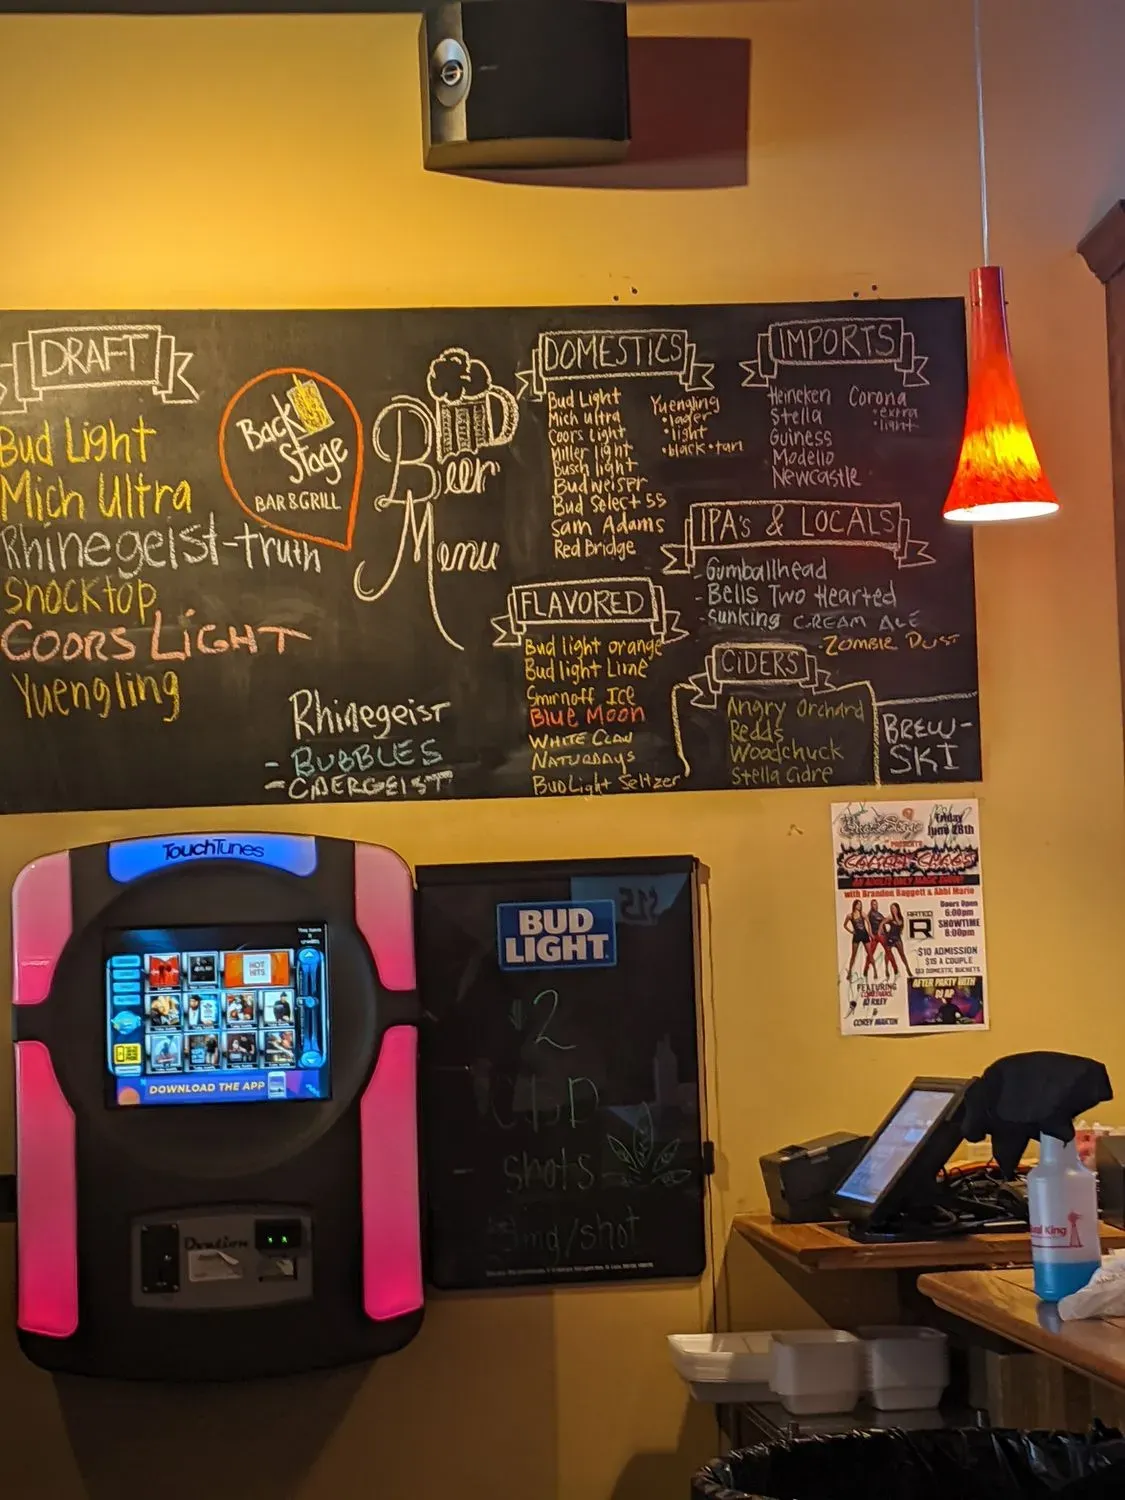 DRAFT
Bud Light
Mich Ultra
Rhinegeist-truth
Shocktop
COORS LIGHT
Yuengling
Back
Stage
BAR & GRILL
Beer
Menu
Rhinegeist
- BUBBLES
- CIDERGEIST
DOMESTICS
Bud Light
Mich ultra
Coors Light
Miller light
Busch light
Budweiser
Bud Select 55
Sam Adams
Red Bridge
Yuengling
•lager
•light
•black+tan
FLAVORED
Bud light orange
Bud light Lime
Smirnoff Ice
BLUE MOON
WHITE CLAW
NATURDAYS
Bud Light Seltzer
IMPORTS
Heineken
Stella
Guiness
Modello
Newcastle
Corona
•extra
•light
IPA's & LOCALS
- Gumballhead
- Bells Two Hearted
- Sunking CREAM ALE
- ZOMBIE DUST
CIDERS
Angry Orchard
Redds
Woodchuck
Stella Cidre
BREW-
SKI
TouchTunes
HOT
HITS
DOWNLOAD THE APP
BUD
LIGHT
$2
CBD
shots
mg/shot
Friday
June 28th
PRESENTS
AN ADULTS ONLY MAGIC SHOW!
with Brandon Baggett & Abbi Marie
RATED
R
Doors Open
6:00pm
SHOWTIME
8:00pm
$10 ADMISSION
$15 A COUPLE
DOMESTIC BUCKETS
FEATURING
&
COREY MARTIN
AFTER PARTY WITH
DJ AP
Rural King